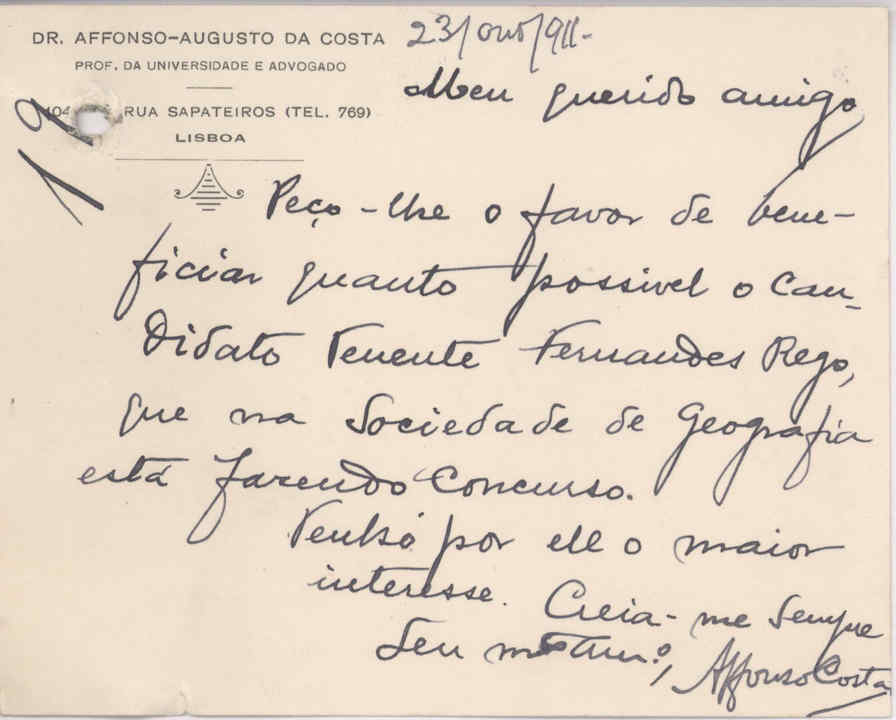 DR. AFFONSO-AUGUSTO DA COSTA
PROF. DA UNIVERSIDADE E ADVOGADO
RUA SAPATEIROS (TEL. 769)
LISBOA
23/out/911-
Meu querido amigo
Peço-lhe o favor de bene-
ficiar quanto possivel o can-
didato tenente Fernandes Rego,
que na Sociedade de Geografia
está fazendo concurso.
Tenho por elle o maior
interesse. Creia-me sempre
Seu
Affonso Costa